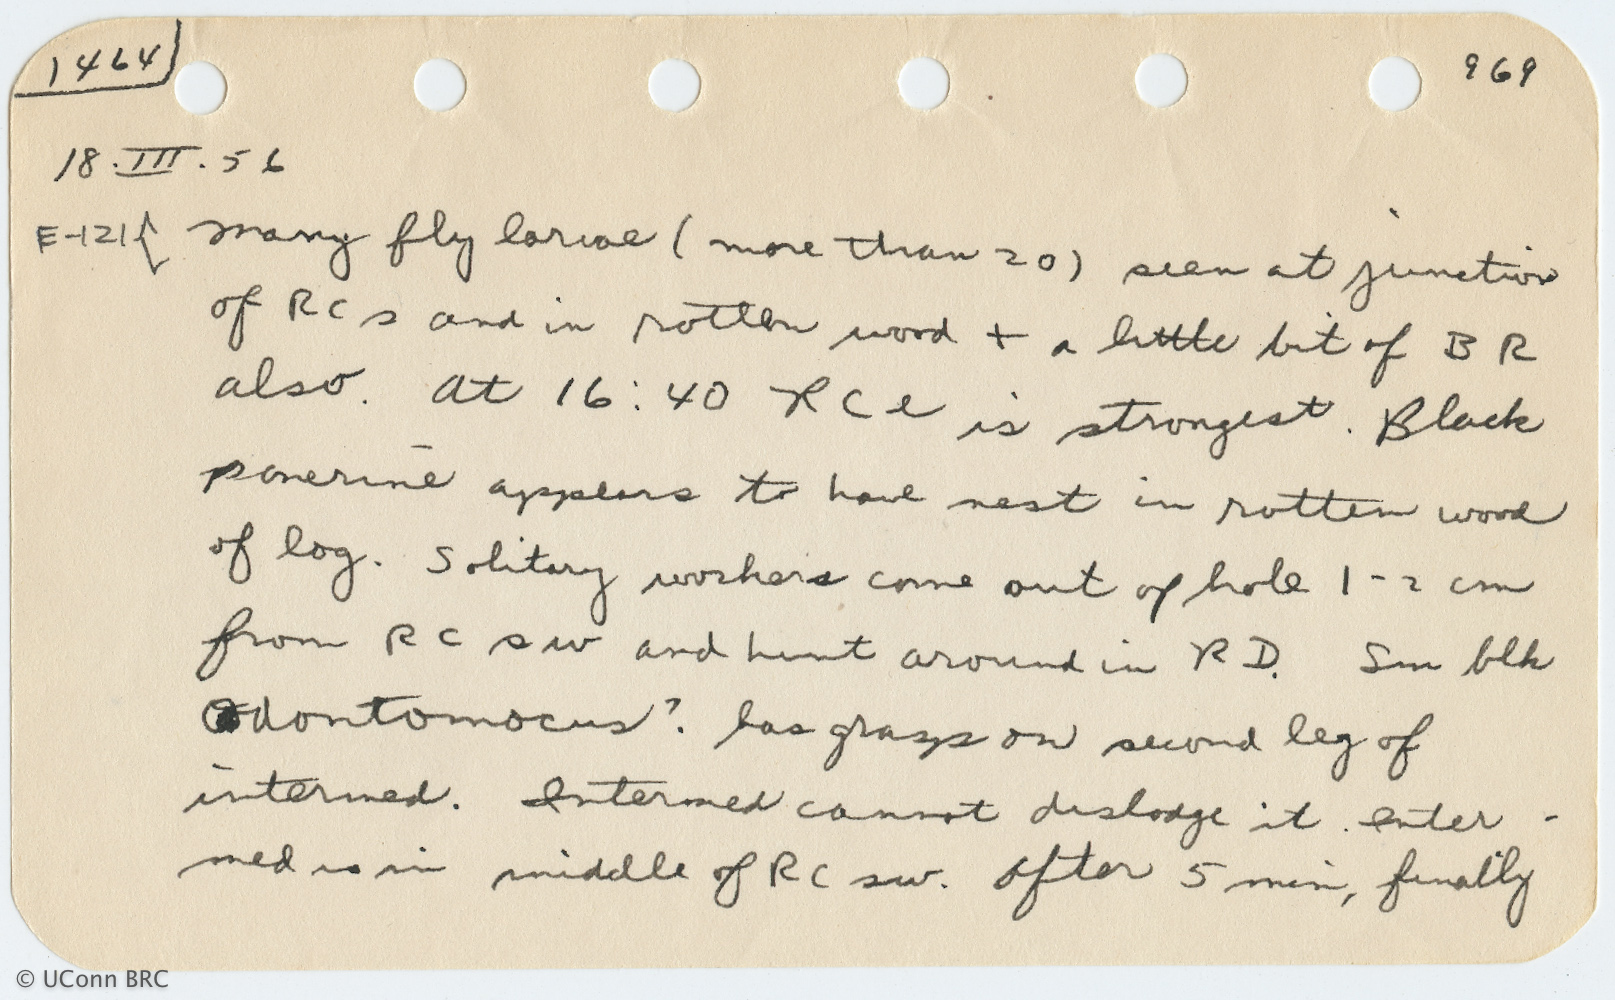 1464
969
18.III.56
E-121{ Many fly larvae (more than 20) seen at junction
of RC s and in rotten wood + a little bit of B R
also. At 16:40 RC e is strongest. Black
ponerine appears to have nest in rotten wood
of log. Solitary workers come out of hole 1-2 cm
from RC sw and hunt around in RD. Sm blk
Odontomocus? has grasps on second leg of
intermed. Intermed cannot dislodge it. Inter-
med is in middle of RC sw. After 5 min, finally
© UConn BRC